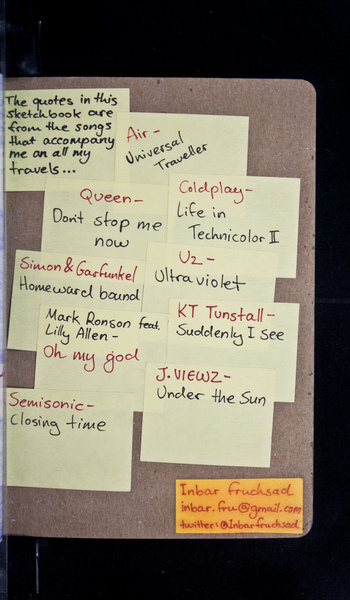 The quotes in this
sketchbook are
from the songs
that accompany
me on all my
travels...
Air -
Universal
Traveller
Queen -
Don't stop me
now
Coldplay -
Life in
Technicolor II
U2 -
Ultraviolet
Simon & Garfunkel
Homeward bound
Mark Ronson feat.
Lilly Allen -
Oh my god
KT Tunstall -
Suddenly I see
J.VIEWZ -
Under the Sun
Semisonic -
Closing time
Inbar fruchsad
inbar.fru@gmail.com
twitter: @Inbarfruchsad